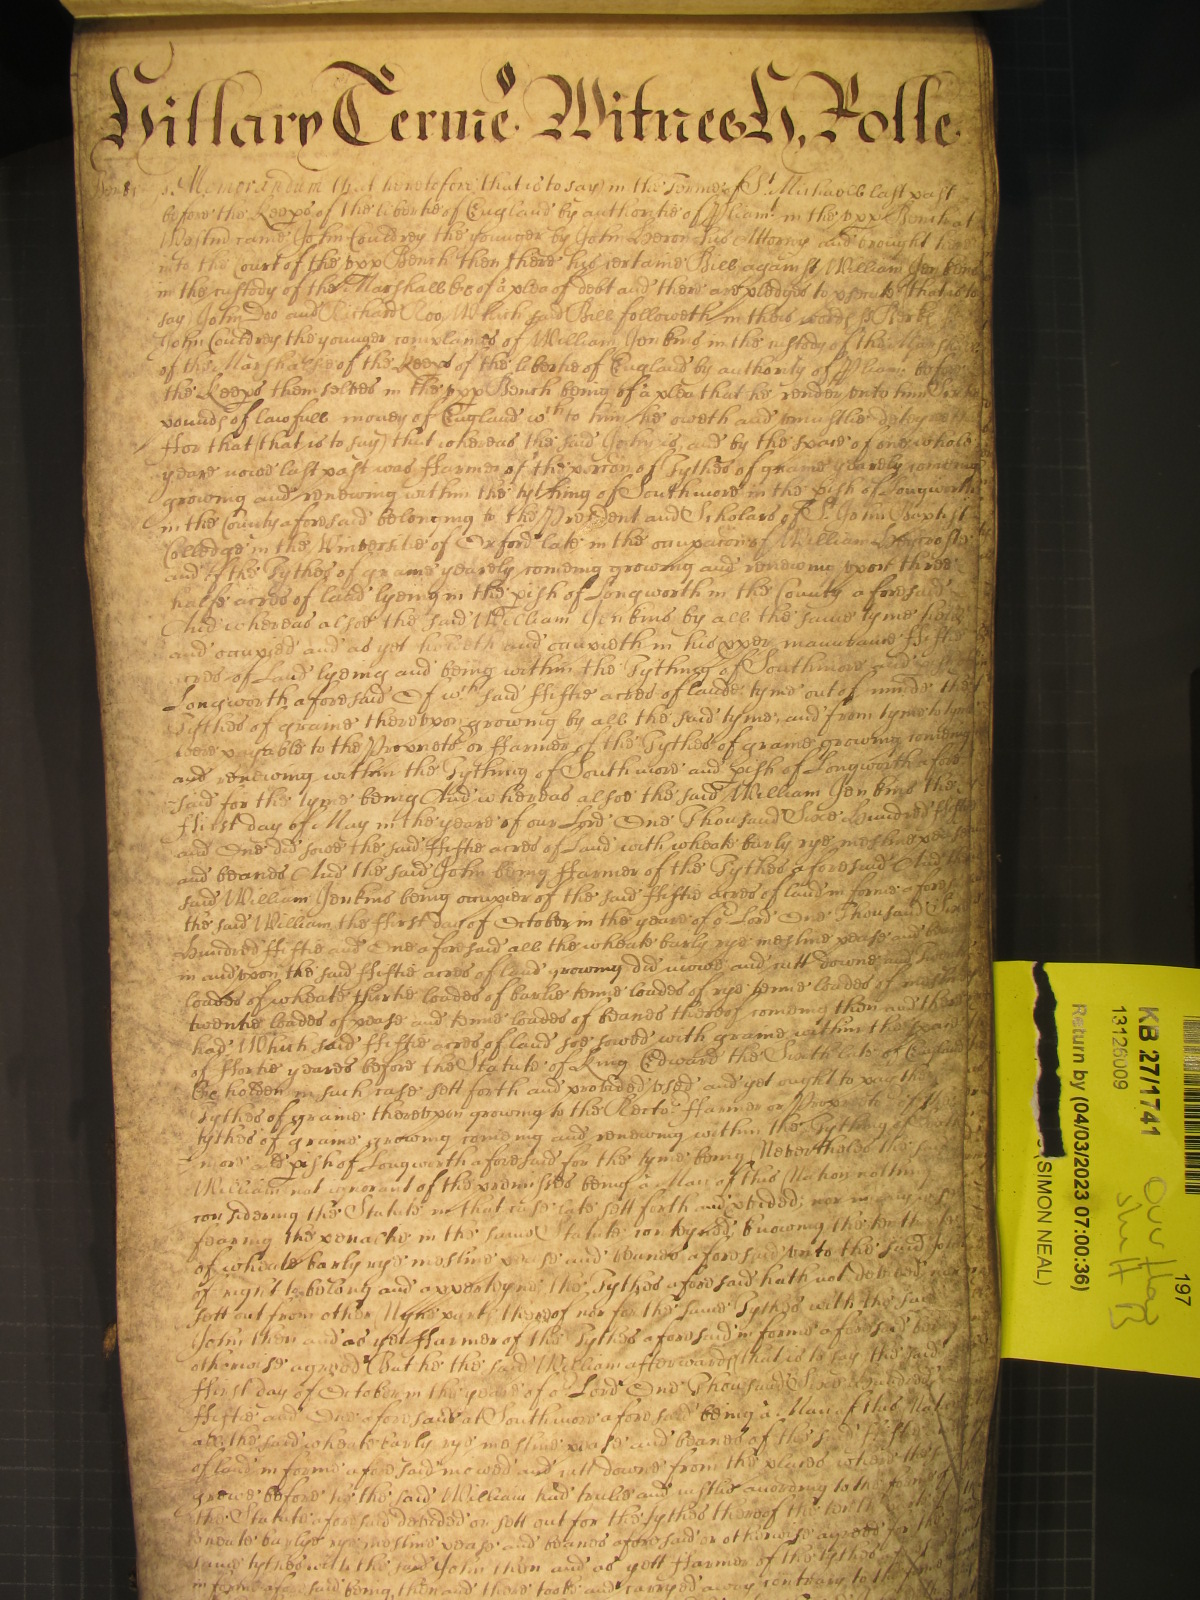 Hillary Terme Witnes H. Rolle.
Berks s. Memorandum that heretofore that is to say in the Terme of St Michaell last past
before the Keeps of the libertie of England by authoritie of Pliamt in the upp Bench at
Westmr came John Couldrey the younger by John his Attorny and brought here
into the Court of the upp Bench then there his certaine Bill against William Jenkins
in the custody of the Marshall &c of a plea of debt and there are pledges to psecute that is to
say John Doo and Richard Roo Which said Bill followeth in theis words ss Berks
John Couldrey the younger complaines of William Jenkins in the custody of the Marshall
of the Marshalsie of the Keeps of the libertie of England by authority of Pliamt before
the Keeps themselves in the upp Bench being of a plea that he render unto him
pounds of lawfull money of England wch to him he oweth and uniustlie deteyneth
ffor that (that is to say) that whereas the said John is, and by the space of one whole
yeare nowe last past was ffarmer of the porcion of Tythes of graine yearely comeing
growing and renewing within the tything of Southmore in the pish of Longworth
in the County aforesaid belonging to the President and Scholars of St John Baptist
Colledge in the Universitie of Oxford late in the occupacion of William
and of the Tythes of graine yearely comeing growing and renewing upon three
halfe acres of land lyeing in the pish of Longworth in the County aforesaid
And whereas alsoe the said William Jenkins by all the same tyme
and occupied and as yet houldeth and occupieth in his pper manurance ffiftie
acres of Land lyeing and being within the Tything of Southmore and
Longworth aforesaid Of wch said ffiftie acres of lande tyme out of minde the
Tythes of graine thereupon growing by all the said tyme, and from tyme to tyme
were payable to the Proprietor or ffarmer of the Tythes of graine growing comeing
and renewing within the Tything of Southmore and pish of Longworth afore
said for the tyme being And whereas alsoe the said William Jenkins the
ffirst day of May in the yeare of our Lord One Thousand Sixe Hundred ffiftie
and One did sowe the said ffiftie acres of Land with wheate barly rye mesline pease
and beanes And the said John being ffarmer of the Tythes aforesaid And the
said William Jenkins being occupier of the said ffiftie acres of land in forme afores
the said William the ffirst day of October in the yeare of or Lord One Thousand Sixe
Hundred ffiftie and One aforesaid all the wheate barly rye mesline pease and beanes
in and upon the said ffiftie acres of land growing did mowe and cutt downe and
loades of wheate thirtie loades of barlie tenne loades of rye tenne loades of mesline
twentie loades of pease and tenne loades of beanes thereof comeing then and there
had Which said ffiftie acres of land soe sowed with graine within the space
of ffortie yeares before the Statute of King Edward the Sixth late of England
&c holden in such case sett forth and provided used and yet ought to pay the
Tythes of graine thereupon growing to the Rector ffarmer or Proprietor of the
tythes of graine growing comeing and renewing within the Tything of South
more and pish of Longworth aforesaid for the tyme being Neverthelesse the said
William not ignorant of the premisses being a Man of this Nation nothing
considering the Statute in that case late sett forth and pvided, nor in any wise
fearing the penaltie in the same Statute conteyned, knowing the tenth
of wheate barly rye mesline pease and beanes aforesaid unto the said John
of right to belong and apperteyne the Tythes aforesaid hath not devided nor
sett out from other Nyne parts thereof nor for the same Tythes with the said
John then and as yet ffarmer of the Tythes aforesaid in forme aforesaid being
otherwise agreed But he the said William afterwards that is to say the said
ffirst day of October in the yeare of or Lord One Thousand Sixe Hundred
ffiftie and One aforesaid at Southmore aforesaid being a Man of this Nation
all the said wheate barly rye mesline pease and beanes of the sd ffiftie
of land in forme aforesaid mowed and cutt downe from the places where the
grewe before he the said William had trulie and iustlie according to the forme of
the Statute aforesaid devided or sett out for the tythes thereof the tenth
wheate barlye rye mesline pease and beanes aforesaid or otherwise agreed for the
same tythes with the said John then and as yett ffarmer of the tythes
in forme aforesaid being, then and there tooke and carryed away contrary to the forme
KB 27/1741
13126009
Return by (04/03/2023 07:00:36)
(SIMON NEAL)
197